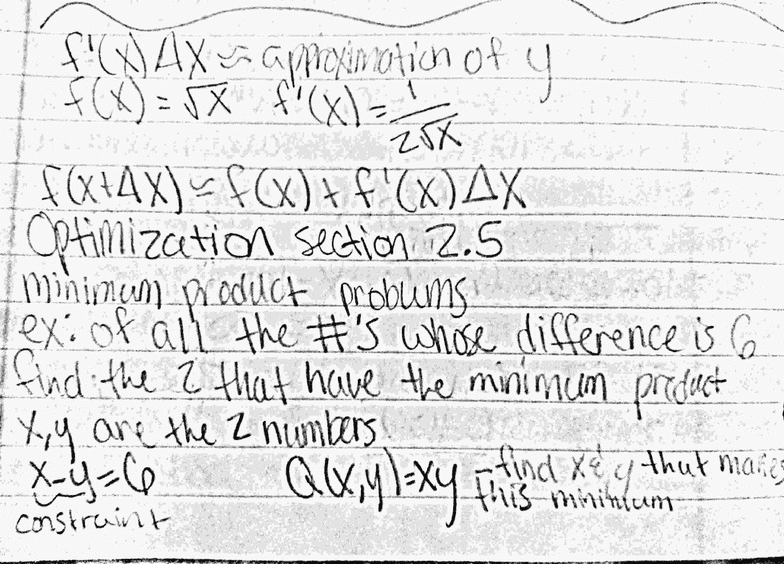 f'(x) Δx ≈ approximation of y
f(x) = √x   f'(x) = 1/2√x
f(x+Δx) ≈ f(x) + f'(x) Δx
Optimization section 2.5
minimum product problems
ex: of all the #'s whose difference is 6
find the 2 that have the minimum product
x, y are the 2 numbers
x-y=6   Q(x,y)=xy - find x & y that makes
constraint   this minimum